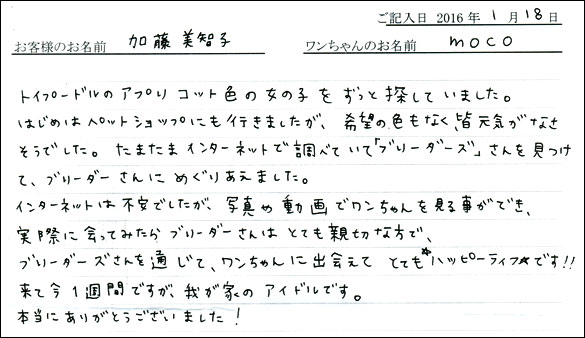 ご記入日 2016年 1月18日
お客様のお名前 加藤 美智子 ワンちゃんのお名前 moco
トイプードルの アプリコット色の女の子を ずっと探していました。
はじめは ペットショップにも行きましたが、希望の色もなく、皆元気がなさ
そうでした。たまたまインターネットで調べていて「ブリーダーズ」さんを見つけ
て、ブリーダーさんにめぐりあえました。
インターネットは不安でしたが、写真や動画でワンちゃんを見る事ができ、
実際に会ってみたらブリーダーさんはとても親切な方で、
ブリーダーズさんを通じて、ワンちゃんに出会えて とても☆ハッピーライフ☆です!!
来て今1週間ですが、我が家のアイドルです。
本当にありがとうございました!